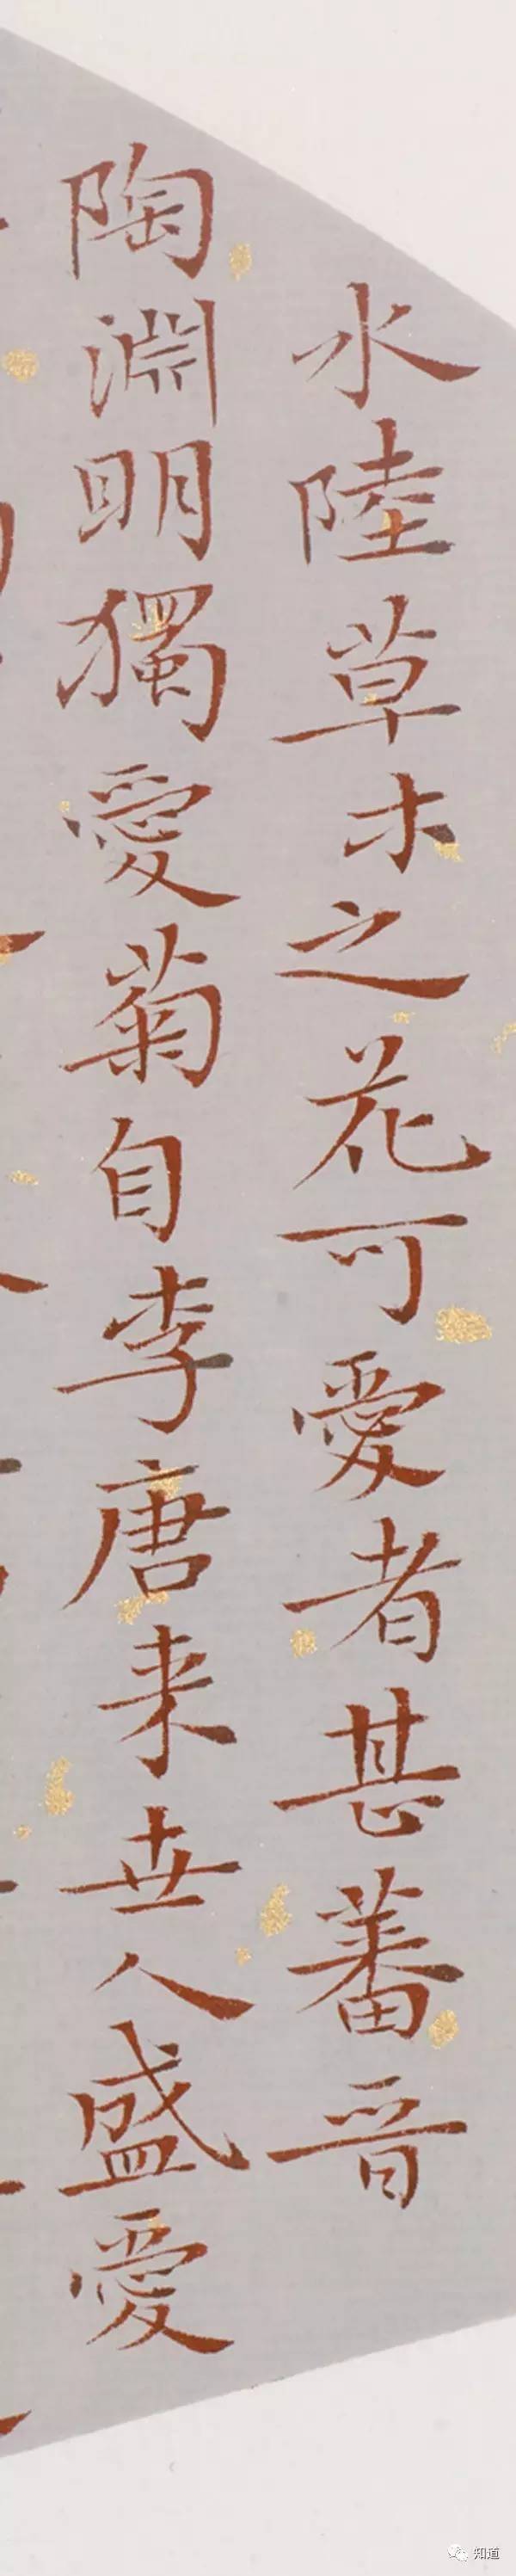 水陸草木之花可愛者甚蕃晉
陶淵明獨愛菊自李唐来世人盛愛
知道